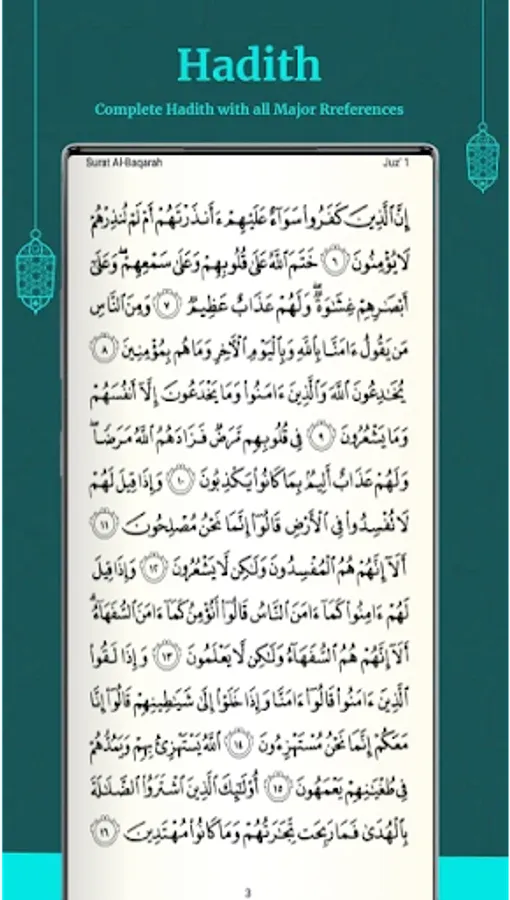 Hadith
Complete Hadith with all Major Rreferences
Surat Al-Baqarah
Juz' 1
إِنَّ ٱلَّذِينَ كَفَرُوا۟ سَوَآءٌ عَلَيْهِمْ ءَأَنذَرْتَهُمْ أَمْ لَمْ تُنذِرْهُمْ
لَا يُؤْمِنُونَ ٦ خَتَمَ ٱللَّهُ عَلَىٰ قُلُوبِهِمْ وَعَلَىٰ سَمْعِهِمْ ۖ وَعَلَىٰٓ
أَبْصَٰرِهِمْ غِشَٰوَةٌ ۖ وَلَهُمْ عَذَابٌ عَظِيمٌ ٧ وَمِنَ ٱلنَّاسِ
مَن يَقُولُ ءَامَنَّا بِٱللَّهِ وَبِٱلْيَوْمِ ٱلْءَاخِرِ وَمَا هُم بِمُؤْمِنِينَ ٨
يُخَٰدِعُونَ ٱللَّهَ وَٱلَّذِينَ ءَامَنُوا۟ وَمَا يَخْدَعُونَ إِلَّآ أَنفُسَهُمْ
وَمَا يَشْعُرُونَ ٩ فِى قُلُوبِهِم مَّرَضٌ فَزَادَهُمُ ٱللَّهُ مَرَضًا ۖ
وَلَهُمْ عَذَابٌ أَلِيمٌۢ بِمَا كَانُوا۟ يَكْذِبُونَ ١٠ وَإِذَا قِيلَ لَهُمْ
لَا تُفْسِدُوا۟ فِى ٱلْأَرْضِ قَالُوٓا۟ إِنَّمَا نَحْنُ مُصْلِحُونَ ١١
أَلَآ إِنَّهُمْ هُمُ ٱلْمُفْسِدُونَ وَلَٰكِن لَّا يَشْعُرُونَ ١٢ وَإِذَا قِيلَ
لَهُمْ ءَامِنُوا۟ كَمَآ ءَامَنَ ٱلنَّاسُ قَالُوٓا۟ أَنُؤْمِنُ كَمَآ ءَامَنَ ٱلسُّفَهَآءُ ۗ
أَلَآ إِنَّهُمْ هُمُ ٱلسُّفَهَآءُ وَلَٰكِن لَّا يَعْلَمُونَ ١٣ وَإِذَا لَقُوا۟
ٱلَّذِينَ ءَامَنُوا۟ قَالُوٓا۟ ءَامَنَّا وَإِذَا خَلَوْا۟ إِلَىٰ شَيَٰطِينِهِمْ قَالُوٓا۟ إِنَّا
مَعَكُمْ إِنَّمَا نَحْنُ مُسْتَهْزِءُونَ ١٤ ٱللَّهُ يَسْتَهْزِئُ بِهِمْ وَيَمُدُّهُمْ
فِى طُغْيَٰنِهِمْ يَعْمَهُونَ ١٥ أُو۟لَٰٓئِكَ ٱلَّذِينَ ٱشْتَرَوُا۟ ٱلضَّلَٰلَةَ
بِٱلْهُدَىٰ فَمَا رَبِحَت تِّجَٰرَتُهُمْ وَمَا كَانُوا۟ مُهْتَدِينَ ١٦
3